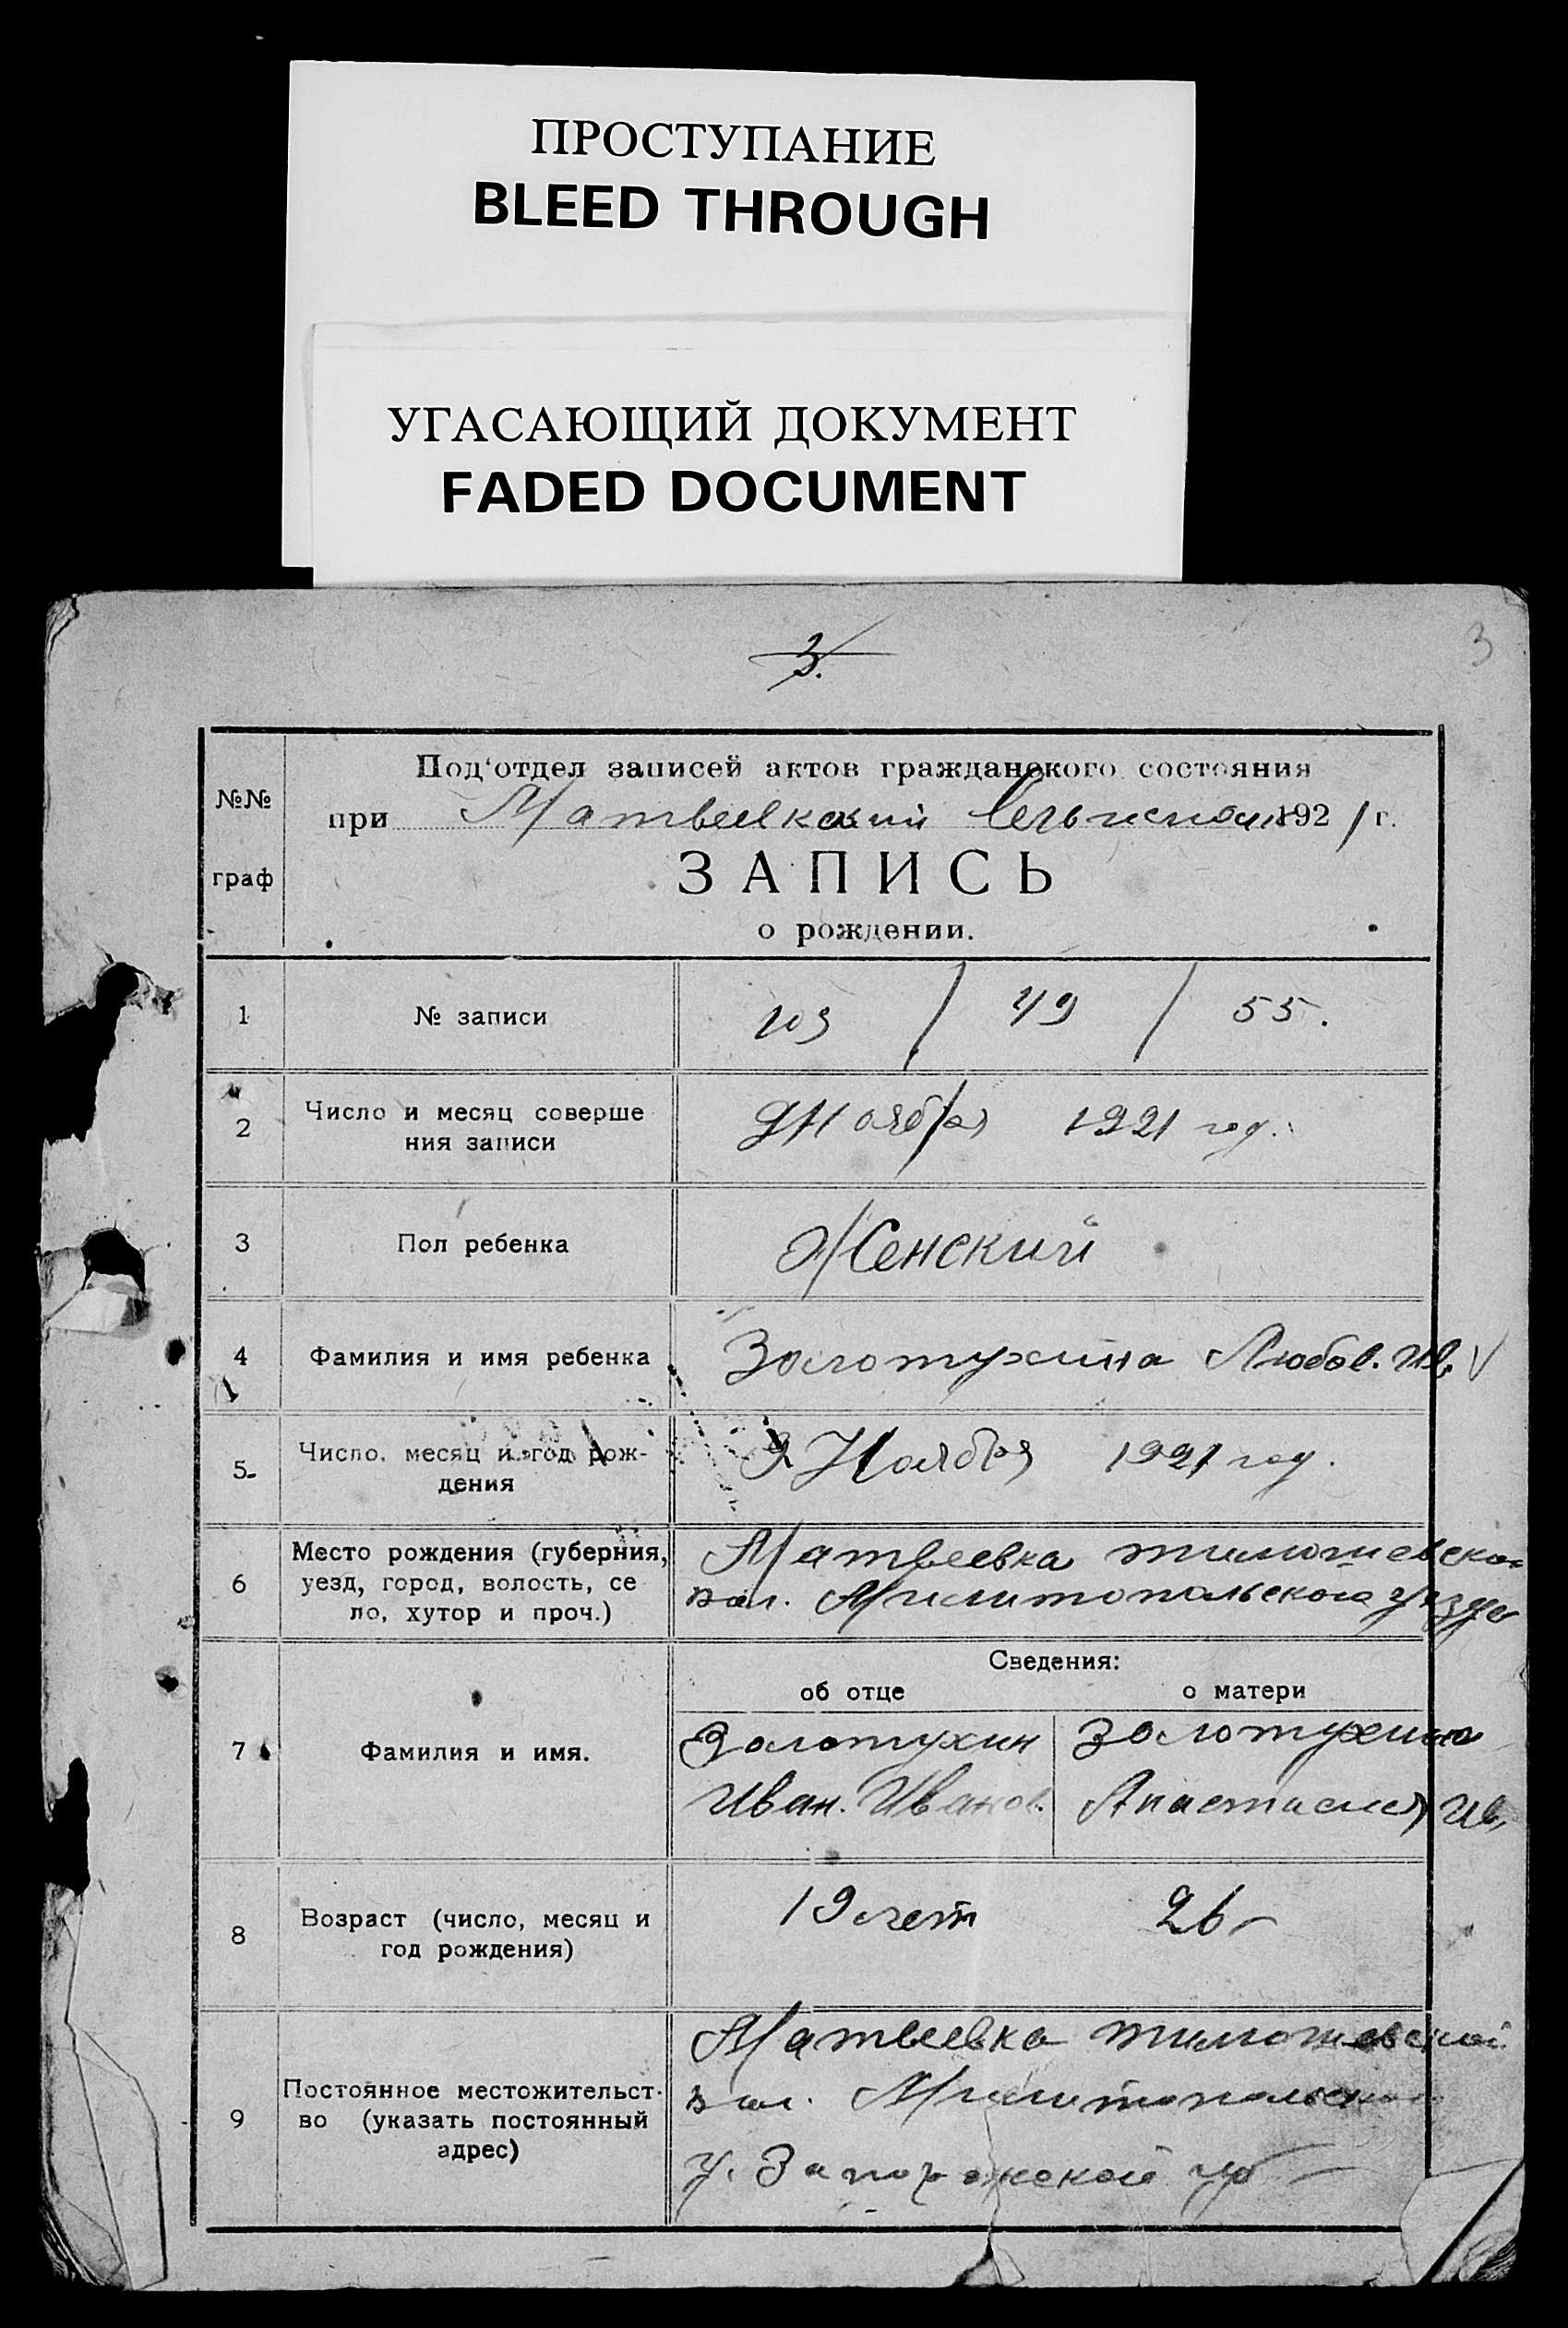 ПРОСТУПАНИЕ
BLEED THROUGH
УГАСАЮЩИЙ ДОКУМЕНТ
FADED DOCUMENT
3.
3
№№
граф
Под'отдел записей актов гражданского состояния
при 1921 г.
ЗАПИСЬ
о рождении.
1 № записи 103 / 49 / 55.
2 Число и месяц соверше
ния записи
9 Ноября 1921 год.
3 Пол ребенка Женский
4 Фамилия и имя ребенка Золотухина Любов. Ив. V
5 Число, месяц и год рож-
дения
9 Ноября 1921 год.
6 Место рождения (губерния,
уезд, город, волость, се
ло, хутор и проч.)
Матвеевка тимошевской
вол. Милитопольского уезда
Сведения:
об отце о матери
7 Фамилия и имя.
Золотухин
Иван. Иванов.
Золотухина
Анастасия Ив.
8 Возраст (число, месяц и
год рождения)
19 лет 26 –
9 Постоянное местожительст-
во (указать постоянный
адрес)
Матвеевка тимошевской
вол. Милитопольского
у. Запорожской губ